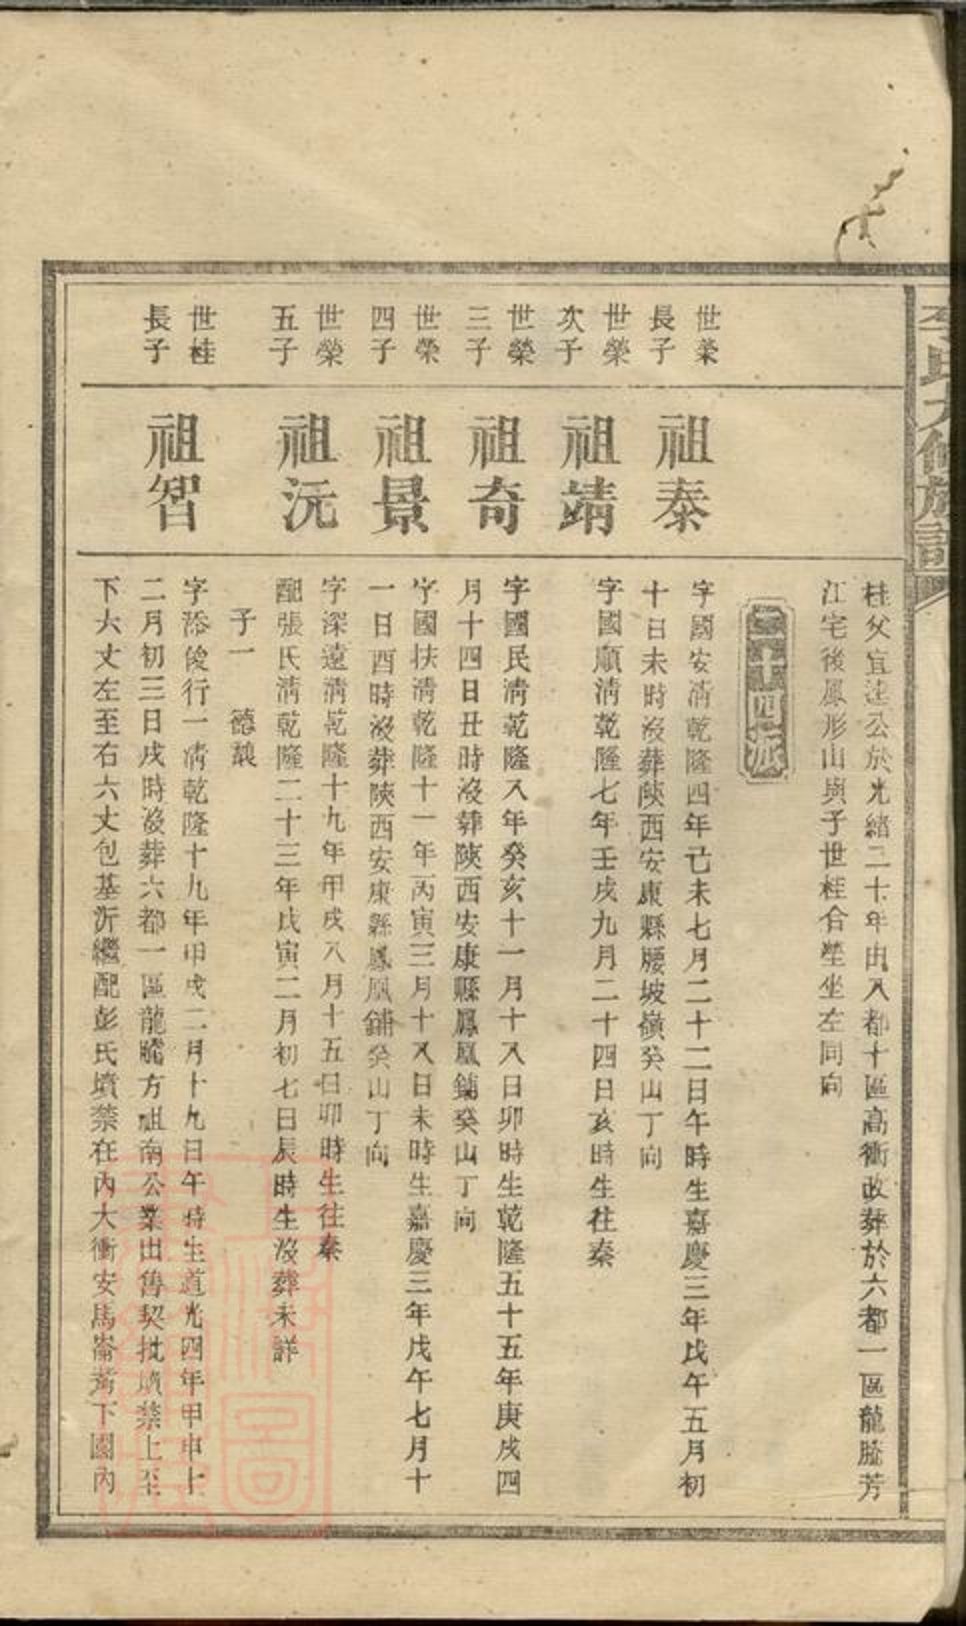 李氏六修族譜
桂父宜溎公於光緒二十年由八都十區高衝改葬於六都一區龍騰芳
江宅後鳳形山與子世桂合塋坐左同向
二十四派
世榮
長子
祖泰
字國安清乾隆四年己未七月二十二日午時生嘉慶三年戊午五月初
十日未時沒葬陝西安康縣腰坡嶺癸山丁向
世榮
次子
祖靖
字國順清乾隆七年壬戌九月二十四日亥時生往秦
世榮
三子
祖奇
字國民清乾隆八年癸亥十一月十八日卯時生乾隆五十五年庚戌四
月十四日丑時沒葬陝西安康縣鳳凰鋪癸山丁向
世榮
四子
祖景
字國扶清乾隆十一年丙寅三月十八日未時生嘉慶三年戊午七月十
一日酉時沒葬陝西安康縣鳳凰鋪癸山丁向
世榮
五子
祖沅
字深遠清乾隆十九年甲戌八月十五日卯時生往秦
配張氏清乾隆二十三年戊寅二月初七日辰時生沒葬未詳
子一 德
世桂
長子
祖智
字添俊行一清乾隆十九年甲戌二月十九日午時生道光四年甲申十
二月初三日戌時沒葬六都一區龍騰方祖南公業出售契批墳禁上至
下六丈左至右六丈包基沂繼配彭氏墳禁在內大衝安馬崙嘴下園內